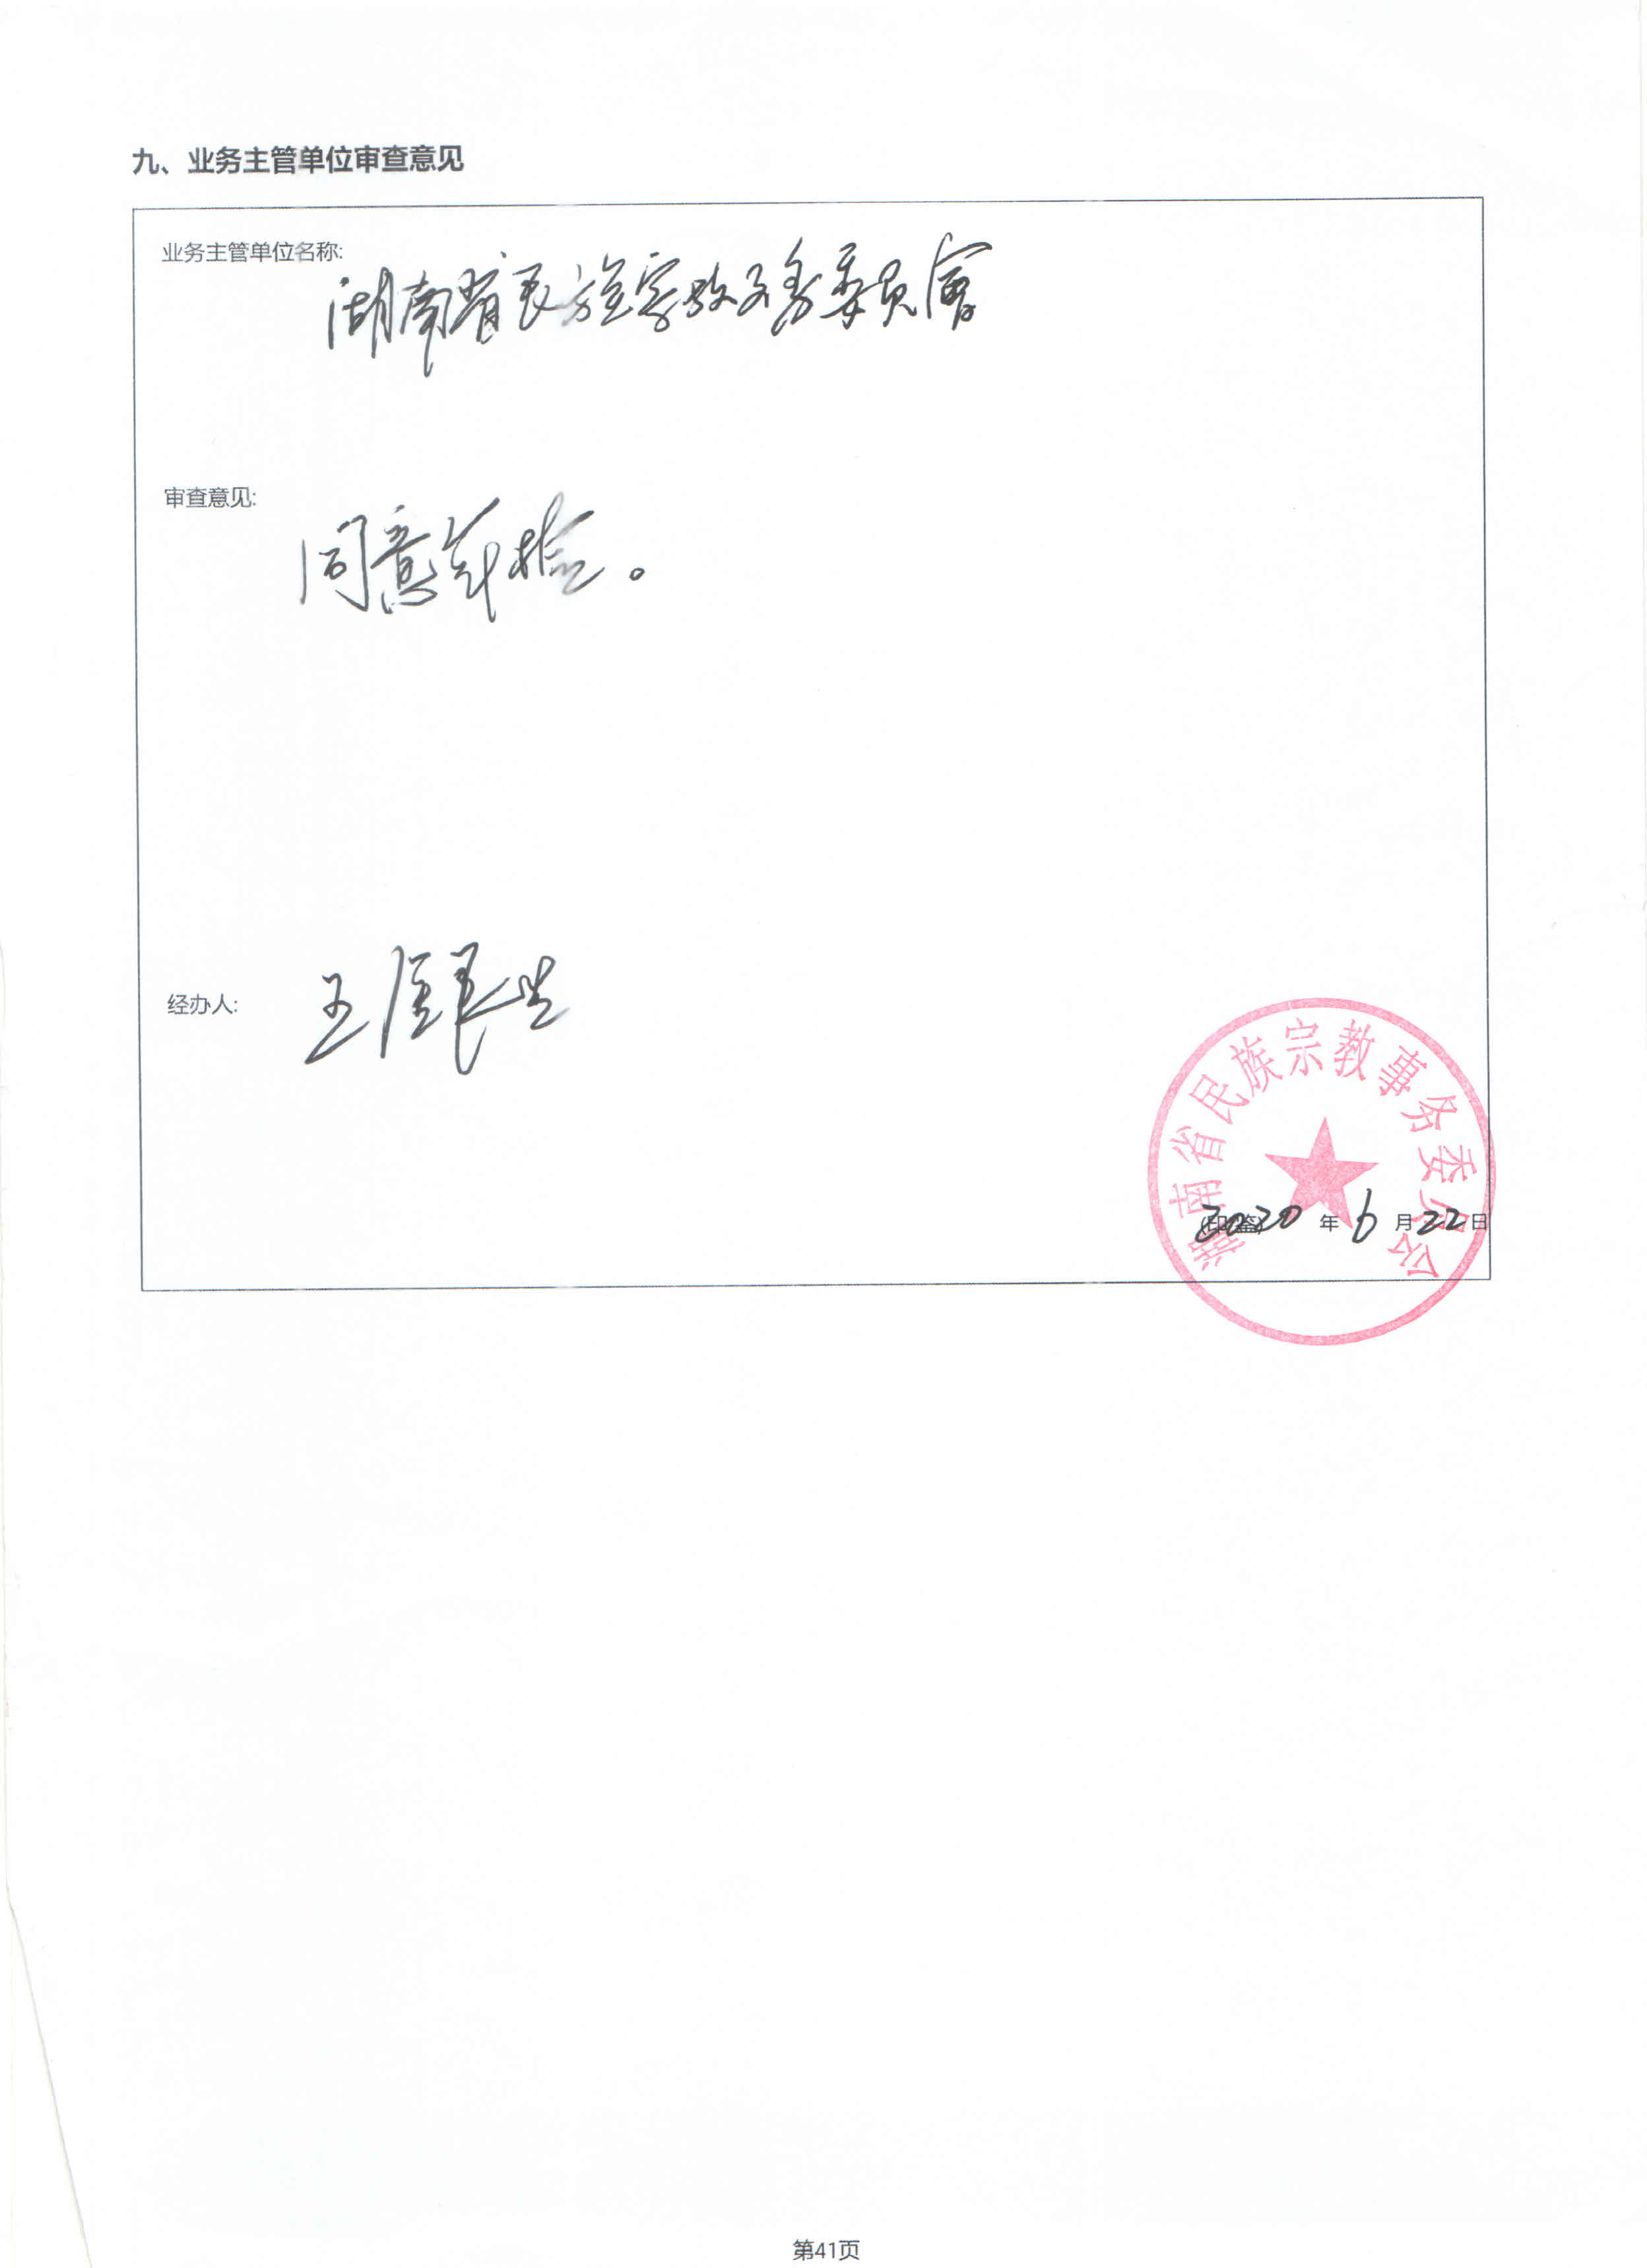 九、业务主管单位审查意见
业务主管单位名称:
湖南省民族宗教事务委员會
审查意见:
同意年检。
经办人:
王
湖南省民族宗教事务委员会
(印鉴)
2020 年 6 月 22 日
第41页